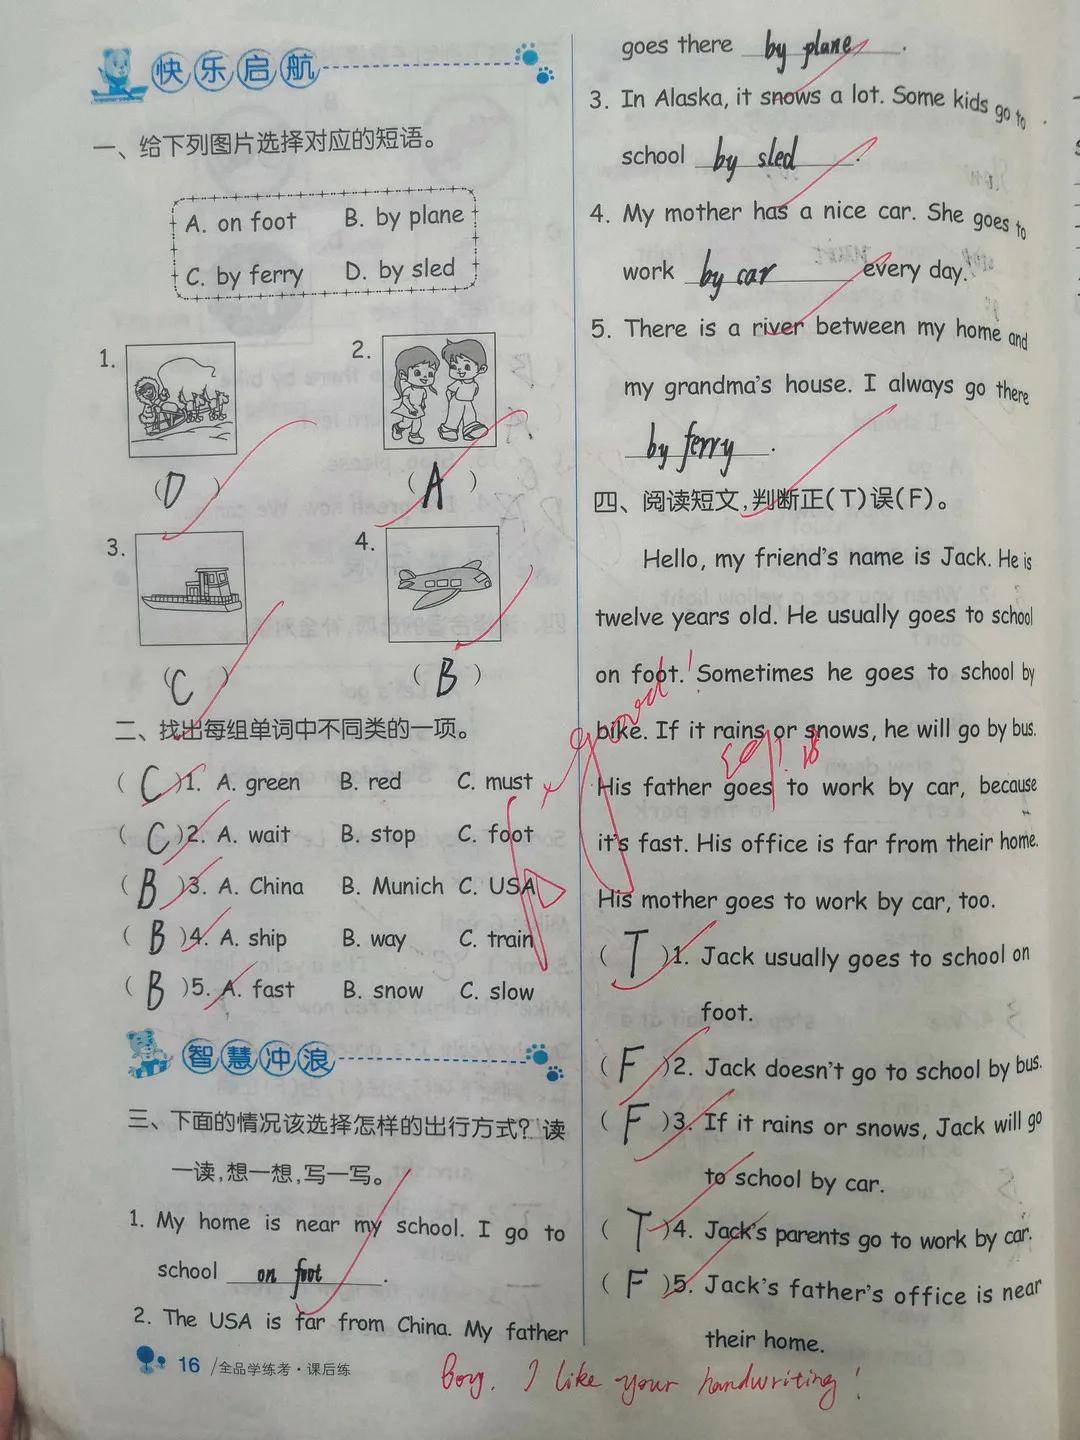 快乐启航
一、给下列图片选择对应的短语。
A. on foot B. by plane
C. by ferry D. by sled
1. 2.
( D ) ( A )
3. 4.
( C ) ( B )
二、找出每组单词中不同类的一项。
( C )1. A. green B. red C. must
( C )2. A. wait B. stop C. foot
( B )3. A. China B. Munich C. USA
( B )4. A. ship B. way C. train
( B )5. A. fast B. snow C. slow
智慧冲浪
三、下面的情况该选择怎样的出行方式?读
一读,想一想,写一写。
1. My home is near my school. I go to
school on foot.
2. The USA is far from China. My father
16/全品学练考·课后练
goes there by plane.
3. In Alaska, it snows a lot. Some kids go to
school by sled.
4. My mother has a nice car. She goes to
work by car every day.
5. There is a river between my home and
my grandma's house. I always go there
by ferry.
四、阅读短文,判断正(T)误(F)。
Hello, my friend's name is Jack. He is
twelve years old. He usually goes to school
on foot. Sometimes he goes to school by
bike. If it rains or snows, he will go by bus.
His father goes to work by car, because
it's fast. His office is far from their home.
His mother goes to work by car, too.
( T )1. Jack usually goes to school on
foot.
( F )2. Jack doesn't go to school by bus.
( F )3. If it rains or snows, Jack will go
to school by car.
( T )4. Jack's parents go to work by car.
( F )5. Jack's father's office is near
their home.
good!
Boy. I like your handwriting!